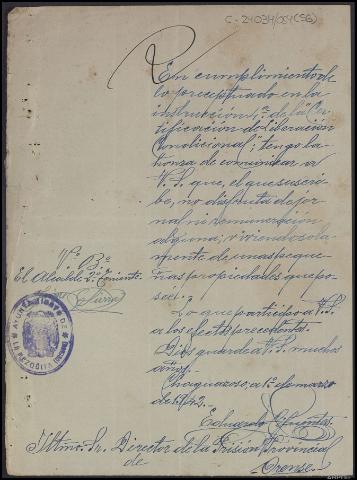 C-24034/054(SG)
En cumplimiento de
lo preceptuado en la
instrucción 1ª de la "Cer
tificación de liberación
Condicional"; tengo la
honra de comunicar a
V.S. que, el que suscri
be, no disfruta de jor
nal ni remuneración
alguna; viviendo sola
mente de unas peque
ñas propiedades que po
seé.
Lo que participo a V.S.
a los efectos procedentes.
Dios guarde a V.S. muchos
años.
Chaguazoso, a 1º de marzo
de 1942.
Eduardo
Vº Bº
El Alcalde 2º Teniente
AYUNTAMIENTO DE
LA MEZQUITA
Iltmo. Sr. Director de la Prisión Provincial
de
Orense.